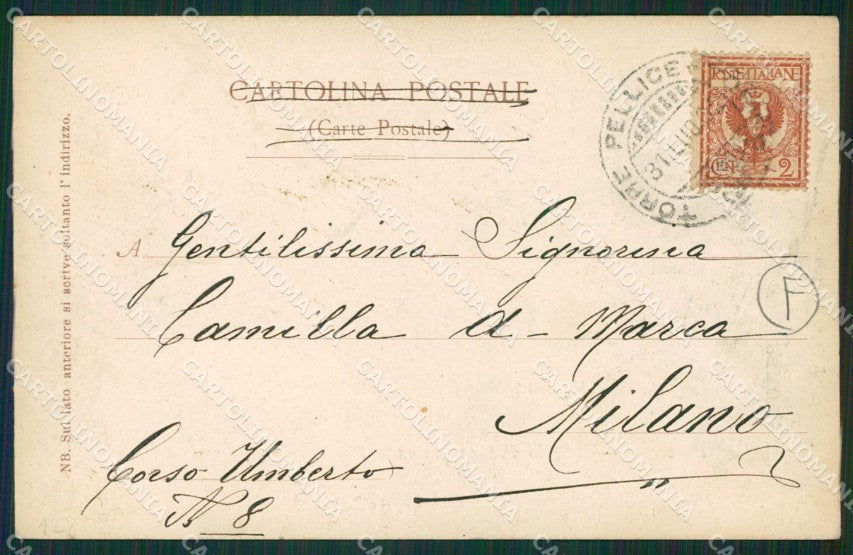 CARTOLINA POSTALE
(Carte Postale)
TORRE PELLICE
31 LUG
POSTE ITALIANE
CENT. 2
A Gentilissima Signorina
Camilla a-Marca
Milano
Corso Umberto
N 8
F
NB. Sul lato anteriore si scrive soltanto l'indirizzo.
CARTOLINOMANIA